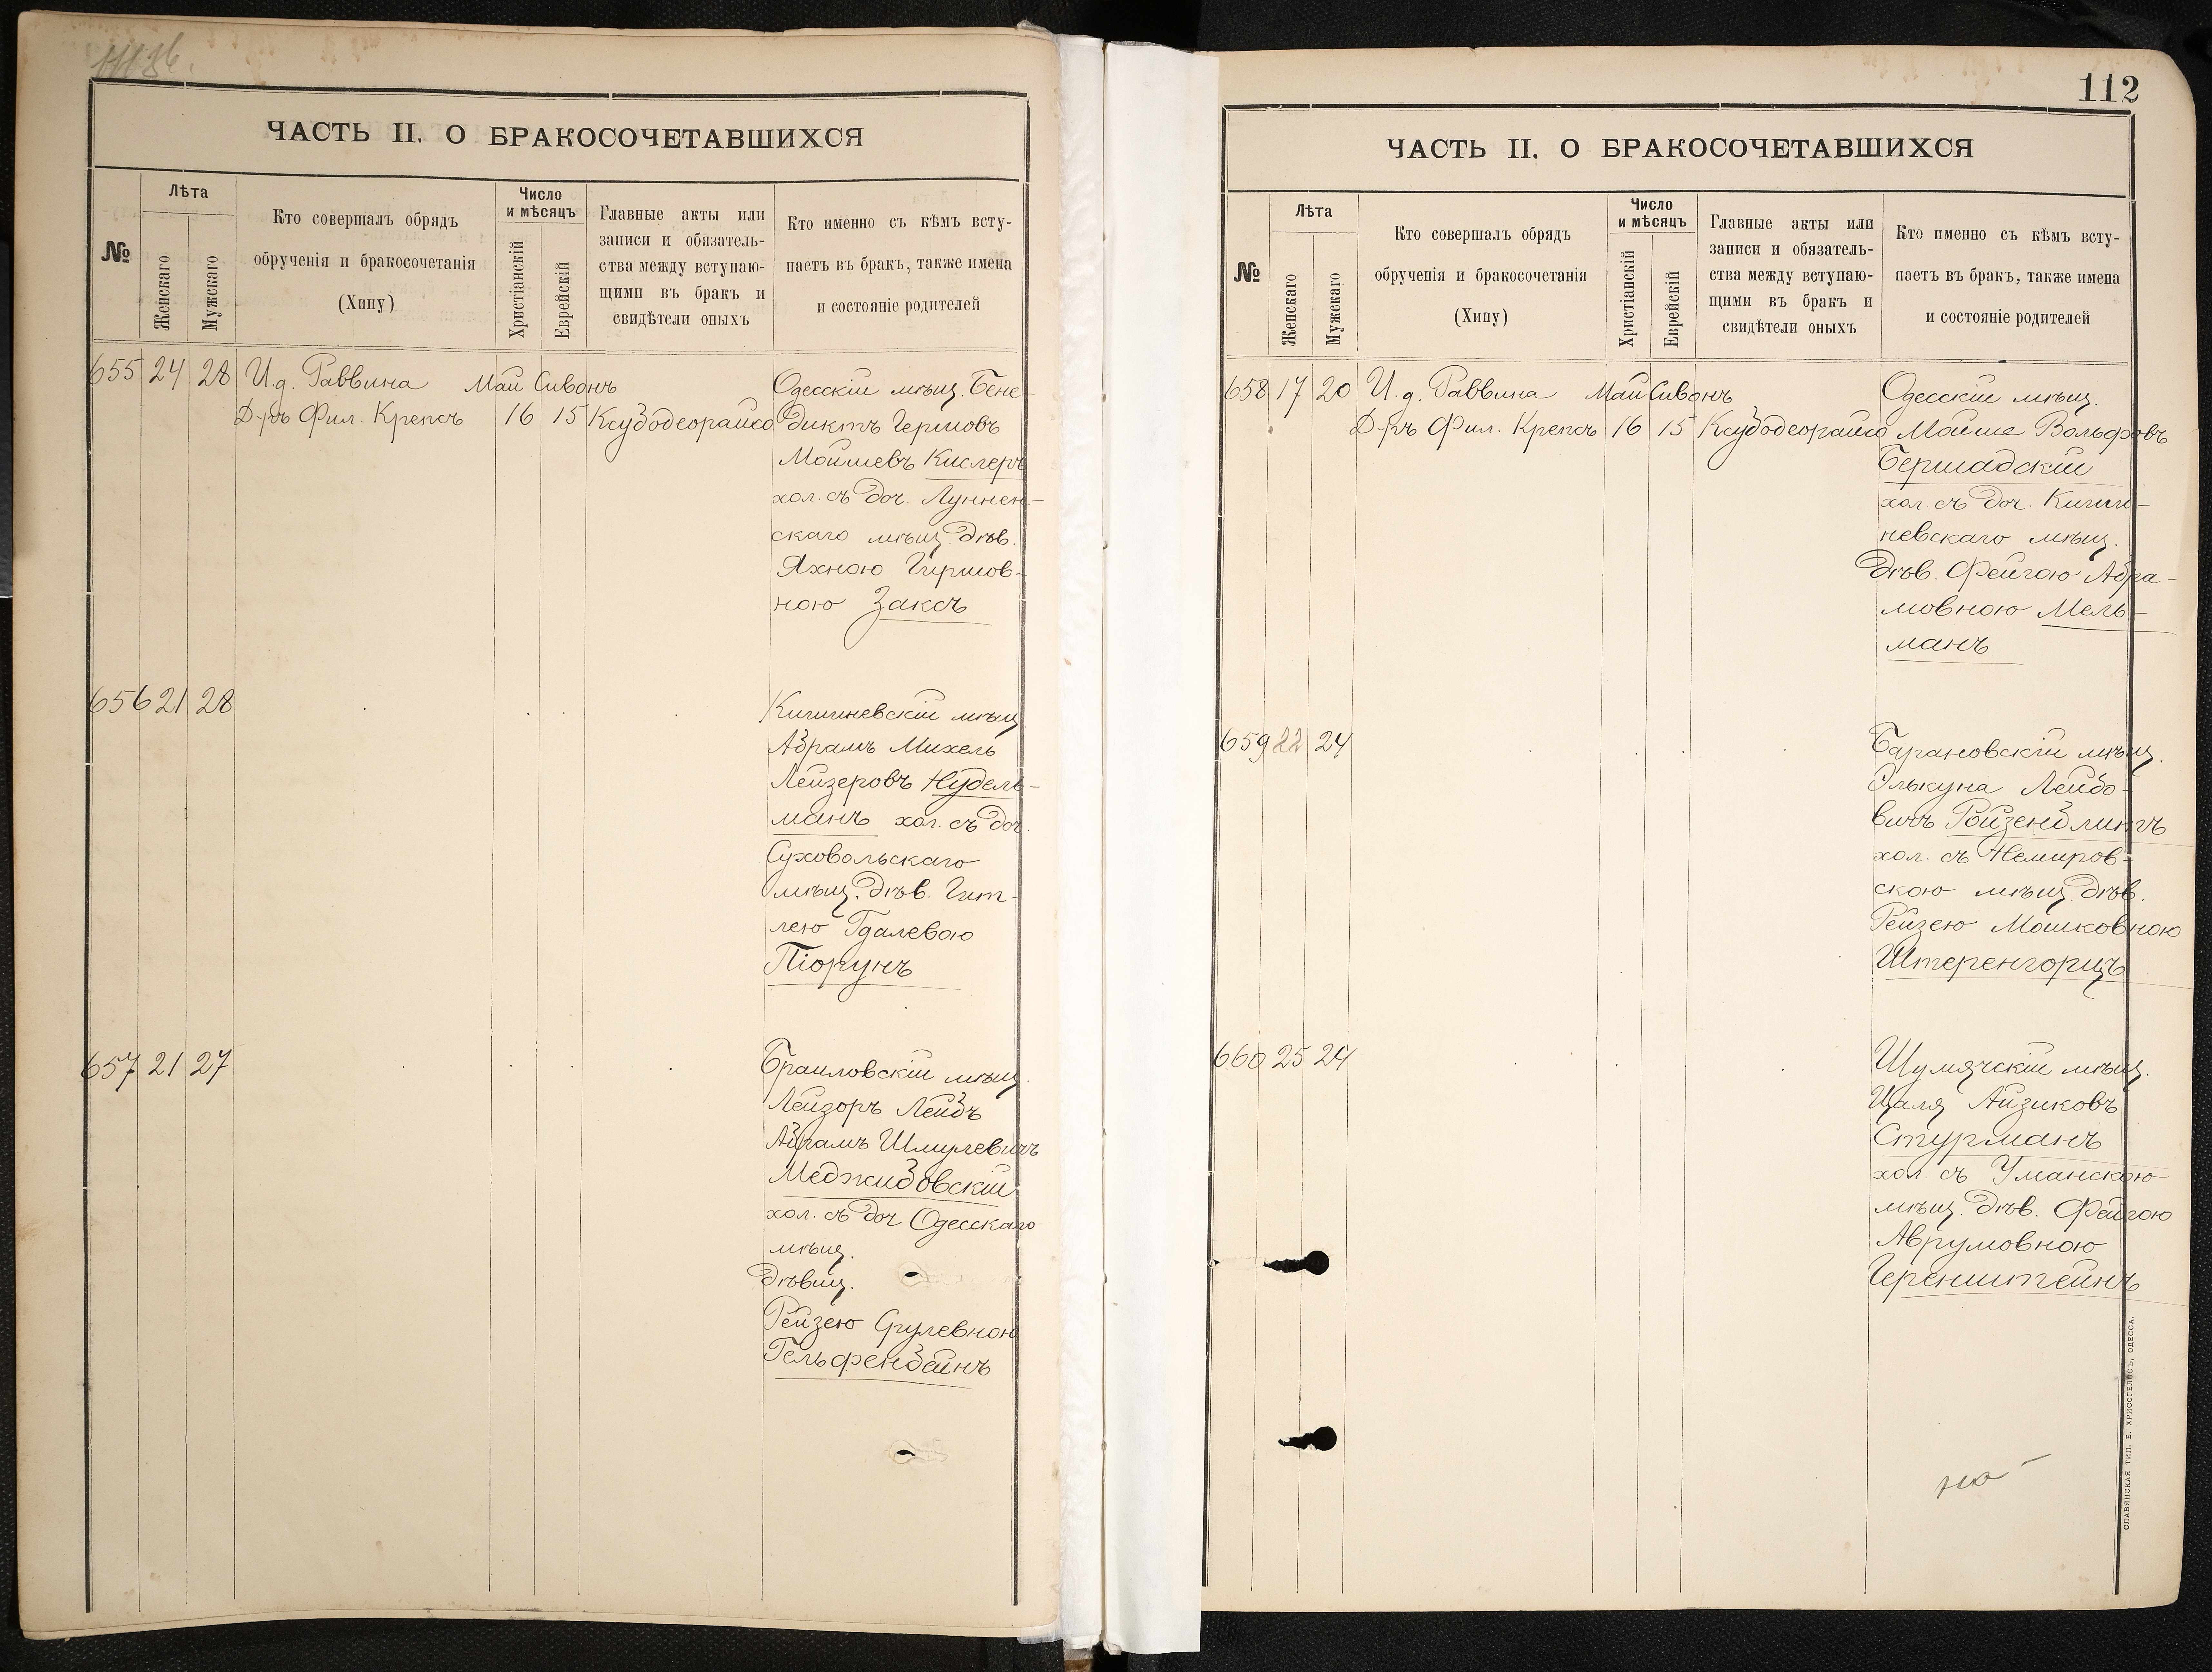 ЧАСТЬ II. О БРАКОСОЧЕТАВШИХСЯ
№
Лѣта
Женскаго
Мужскаго
Кто совершалъ обрядъ
обрученія и бракосочетанія
(Хипу)
Число
и мѣсяцъ
Христіанскій
Еврейскій
Главные акты или
записи и обязатель-
ства между вступаю-
щими въ бракъ и
свидѣтели оныхъ
Кто именно съ кѣмъ всту-
паетъ въ бракъ, также имена
и состояніе родителей
655 24 28 И.д. Раввина Май Сивонъ Одесскій мѣщ. Бене-
Д-ръ Фил. Крепсъ 16 15 Ксубодеорайсо диктъ Гершовъ
Мошевъ Кислеръ
хол. съ доч. Луннен-
скаго мѣщ. дѣв.
Яхною Гиршов-
ною Заксъ
656 21 28 Кишиневскій мѣщ.
Абрамъ Михель
Лейзеровъ Нудель-
манъ хол. съ доч.
Суховольскаго
мѣщ. дѣв. Гит-
лею Гдалевою
Піорунъ
657 21 27 Браиловскій мѣщ.
Лейзоръ Лейбъ
Абрамъ Шмулевичъ
Меджибовскій
хол. съ доч Одесскаго
мѣщ.
дѣвиц.
Рейзею Срулевною
Гельфенбейнъ
112
ЧАСТЬ II. О БРАКОСОЧЕТАВШИХСЯ
№
Лѣта
Женскаго
Мужскаго
Кто совершалъ обрядъ
обрученія и бракосочетанія
(Хипу)
Число
и мѣсяцъ
Христіанскій
Еврейскій
Главные акты или
записи и обязатель-
ства между вступаю-
щими въ бракъ и
свидѣтели оныхъ
Кто именно съ кѣмъ всту-
паетъ въ бракъ, также имена
и состояніе родителей
658 17 20 И.д. Раввина Май Сивонъ Одесскій мѣщ.
Д-ръ Фил. Крепсъ 16 15 Ксубодеорайсо Мойше Вольфовъ
Бершадскій
хол. съ доч. Киши-
невскаго мѣщ.
дѣв. Фейгою Абра-
мовною Мель-
манъ
659 22 24 Барановскій мѣщ.
Элькуна Лейбо-
вичъ Ройзендлингъ
хол. съ Немиров-
скою мѣщ. дѣв.
Рейзею Мошковною
Штеренгорцъ
660 25 24 Шумячскій мѣщ.
Цаля Айзиковъ
Стурманъ
хол. съ Уманскою
мѣщ. дѣв. Фейгою
Аврумовною
Геренштейнъ
СЛАВЯНСКАЯ ТИП. Е. ХРИСОГЕЛОСЪ, ОДЕССА.